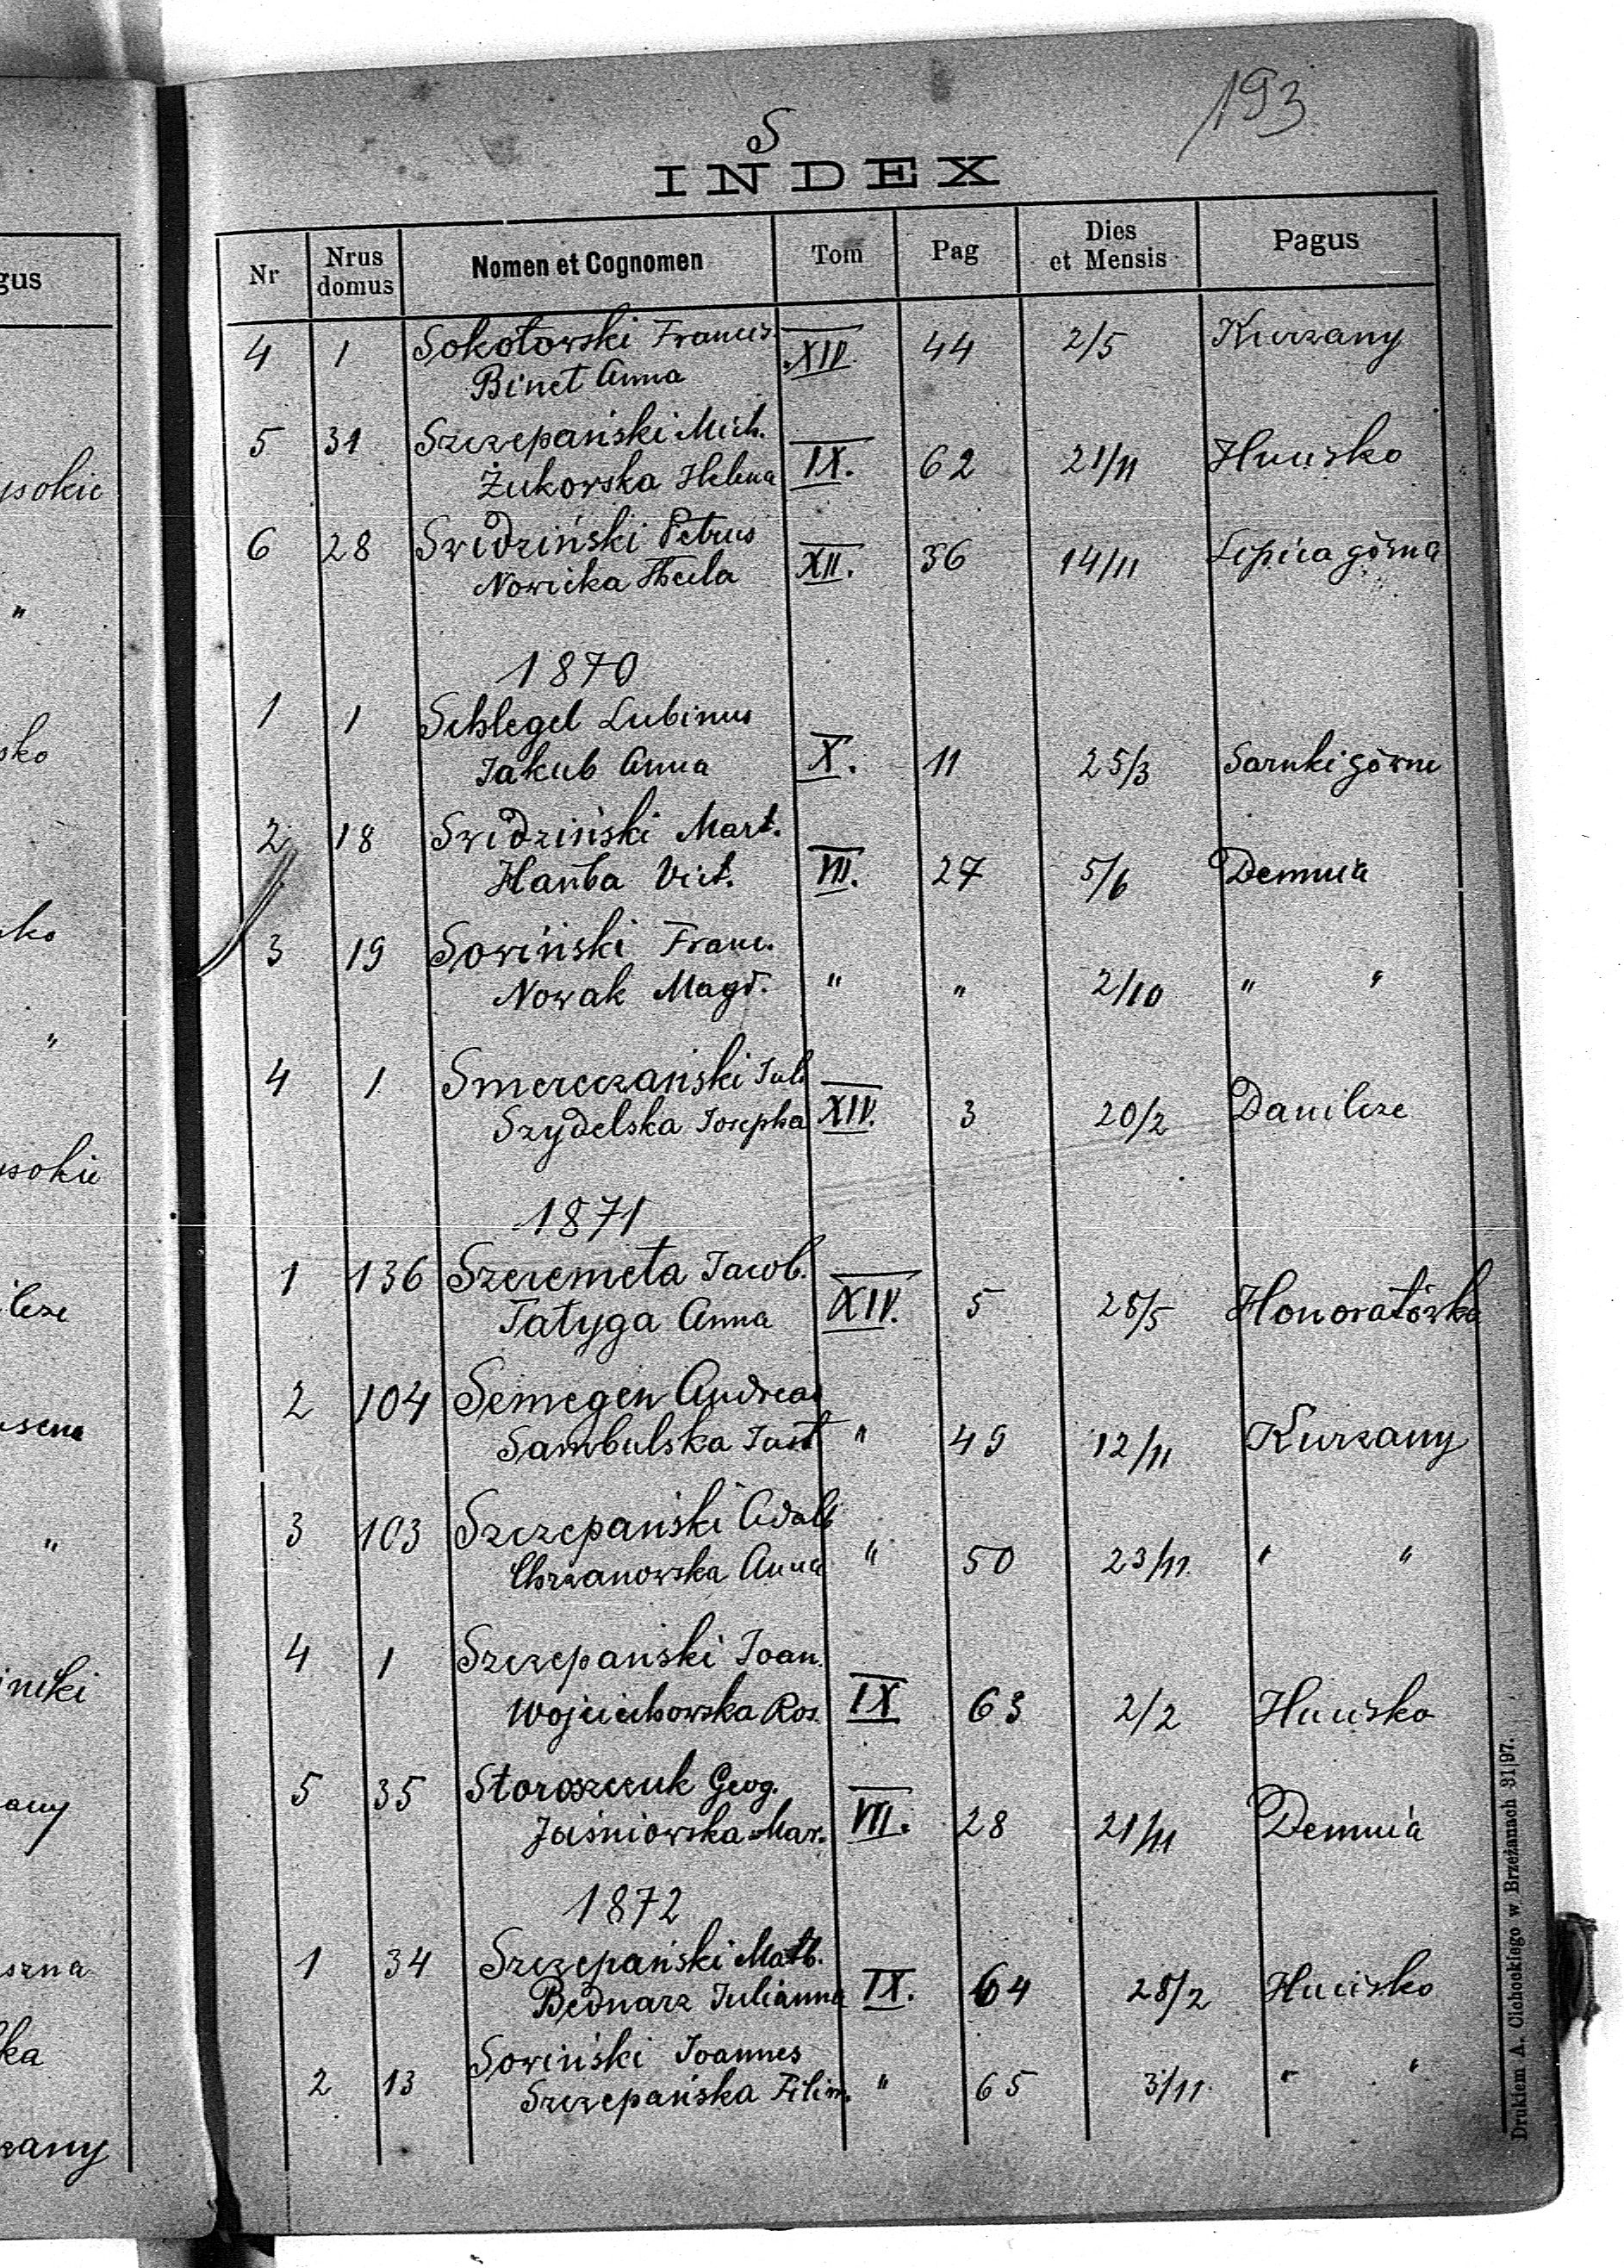 193
S
INDEX
Nr Nrus domus Nomen et Cognomen Tom Pag Dies et Mensis Pagus
4 1 Sokołowski Francis. XIV. 44 2/5 Kurzany
Binet Anna
5 31 Szczepański Mich. IX. 62 21/11 Hucisko
Żukowska Helena
6 28 Swidziński Petrus XII. 36 14/11 Lipica górna
Nowicka Thecla
1870
1 1 Schlegel Lubinus
Jakub Anna X. 11 25/3 Sarnki górne
2 18 Swidziński Mart.
Hańba Vict. VII. 27 5/6 Demnia
3 19 Sowiński Franc.
Nowak Magd. " " 2/10 " "
4 1 Smereczański Jul.
Szydelska Josepha XIV. 3 20/2 Danilcze
1871
1 136 Szeremeta Jacob.
Tatyga Anna XIV. 5 28/5 Honoratówka
2 104 Semegen Andreas
Sambulska Just " 49 12/11 Kurzany
3 103 Szczepański Adalb
Chrzanowska Anna " 50 23/11. " "
4 1 Szczepański Joan.
Wojciechowska Ros. IX 63 2/2 Hucisko
5 35 Storoszczuk Georg.
Jaśniowska Mar. VII. 28 21/11 Demnia
1872
1 34 Szczepański Math.
Bednarz Julianna IX. 64 28/2 Hucisko
2 13 Sowiński Joannes
Szczepańska Filim. " 65 3/11. " "
Drukiem A. Cichockiego w Brzeżanach 31|97.
gus
ysokie
"
sko
sko
"
ysokie
ilcze
"
any
szna
ka
zany